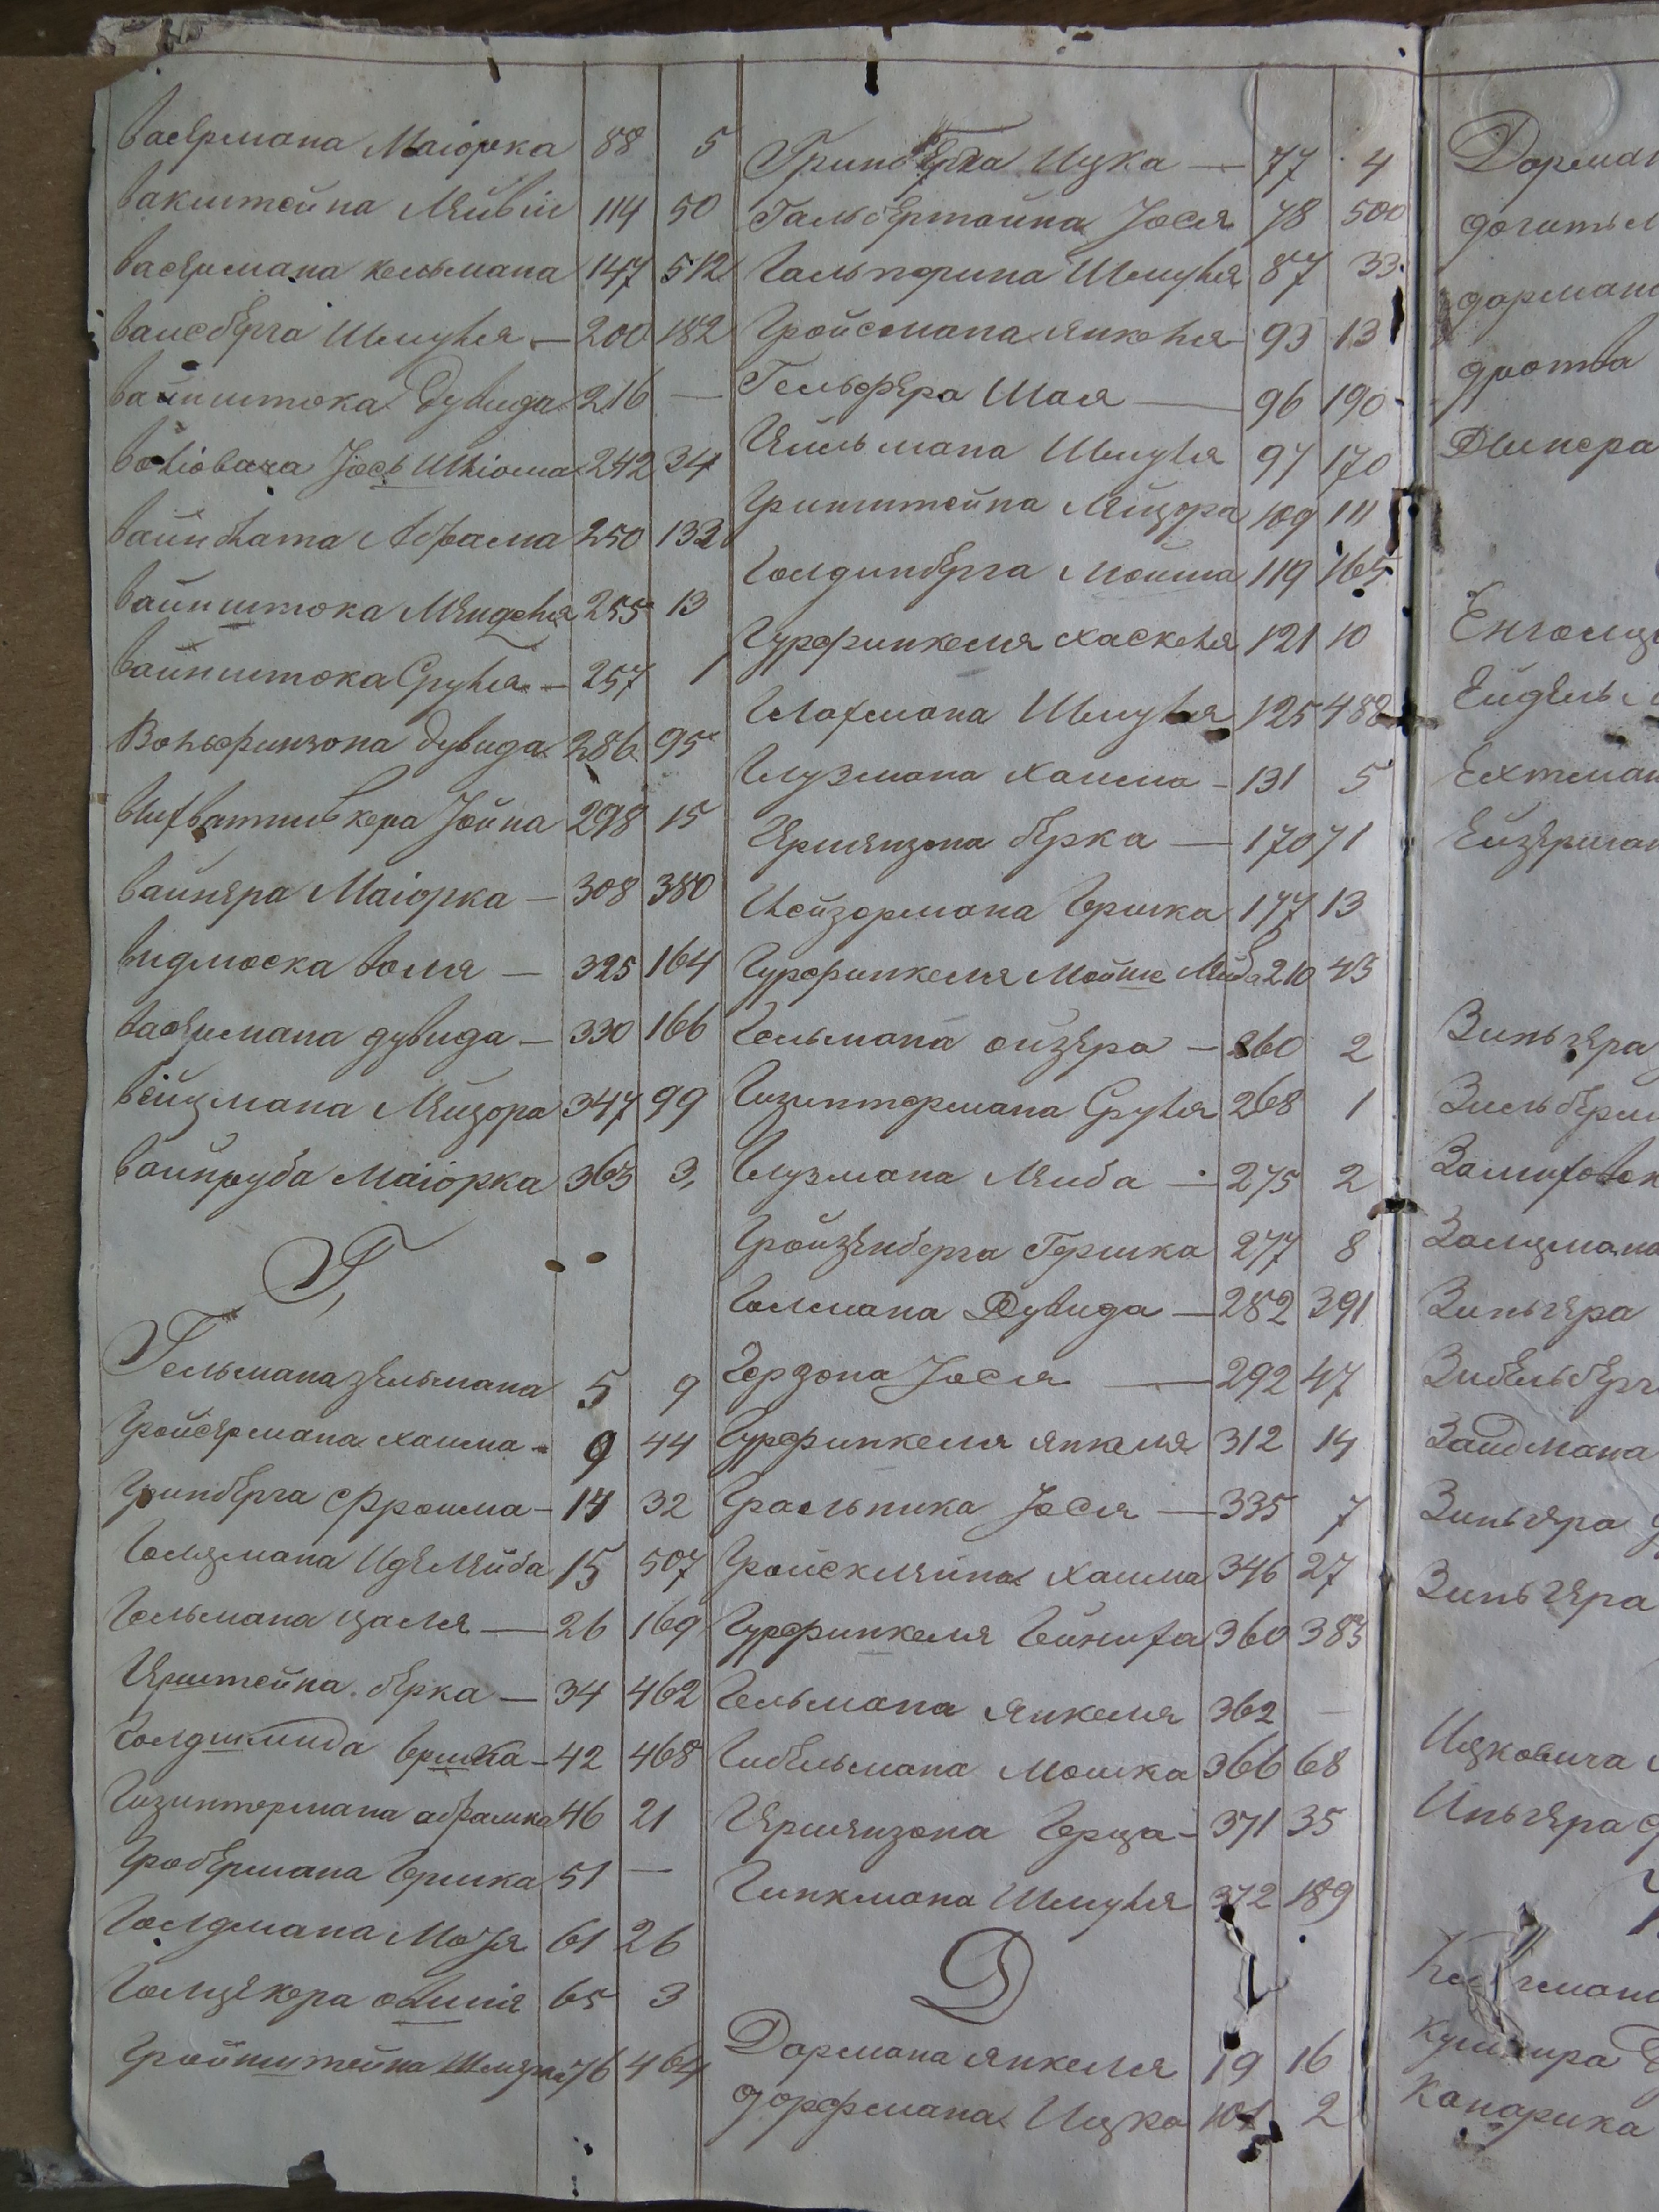 Васермана Маіорка 88 5
Вакштейна Лейви 114 50
Васермана Кельмана 147 512
Вайсберга Шмуля — 200 182
Вайнштока Дувида 216 —
Іось Шліома 242 34
Вайнблата Абрама 250 132
Вайнштока Менделя 255 13
Вайнштока Сруля — 257 1
Вольфинзона Дувида 286 95
Іойна 298 15
Вайнера Маіорка — 308 380
ВидмоскаВоля — 325 164
Васермана Дувида — 330 166
Вейцмана Лейзора 347 99
Вайнруба Маіорка 363 3
Г,
Гельмана Зельмана 5 9
Гройсермана Хаима — 9 44
Гринберга Фроима — 14 32
Голцмана Иделейба 15 507
Гельмана Цаля — 26 169
Герштейна Берка — 34 462
Голдшмида Гершка — 42 468
Гизинтермана Абрамка 46 21
Гробермана Гершка 51 —
Голдмана 61 26
Голцекера 65 3
Гройнштейна 76 464
Гринберга Ицка — 77 4
Гальбертайна Іося 78 500
Гальперина Шмуля 87 33
Гройсмана Янкеля 93 13
Гельфера Шая — 96 190
Гейльмана Шмуля 97 170
Гринштейна Лейзора 109 111
Голдинберга Мойша 119 165
Гурфинкеля Хаскеля 121 10
Глахмана Шмуля 125 488
Глузмана Хаима — 131 5
Гершензона Берка — 170 71
Глейзермана Гершка 177 13
Гурфинкеля Мойше Лейба 210 43
Гельмана Ойзера — 260 2
Гизинтермана Сруля 268 1
Глузмана Лейба — 275 2
Гройзенберга Гершка 277 8
Голмана Дувида — 282 391
Герзона Іося — 292 47
Гурфинкеля Янкеля 312 14
Гральника Іося — 335 7
Гройсклейна Хаима 346 27
Гурфинкеля Гейниха 360 383
Гельмана Янкеля 362 —
Гибельмана Мошка 366 68
Гершензона Герца — 371 35
Гинкмана Шмуля 372 189
Д
Дормана Янкеля 19 16
Дорфмана Ицка 101 2
Дорман
дорман
дротва
Днипера
Енголц
Ейдель
Ехтман
Ейзерман
Зильгера
Зильберм
Залцмана
Зингера
Зибельберг
Зайдмана
Зингера
Зингера
Ицковича
Ингера
Кушнира
Канарика